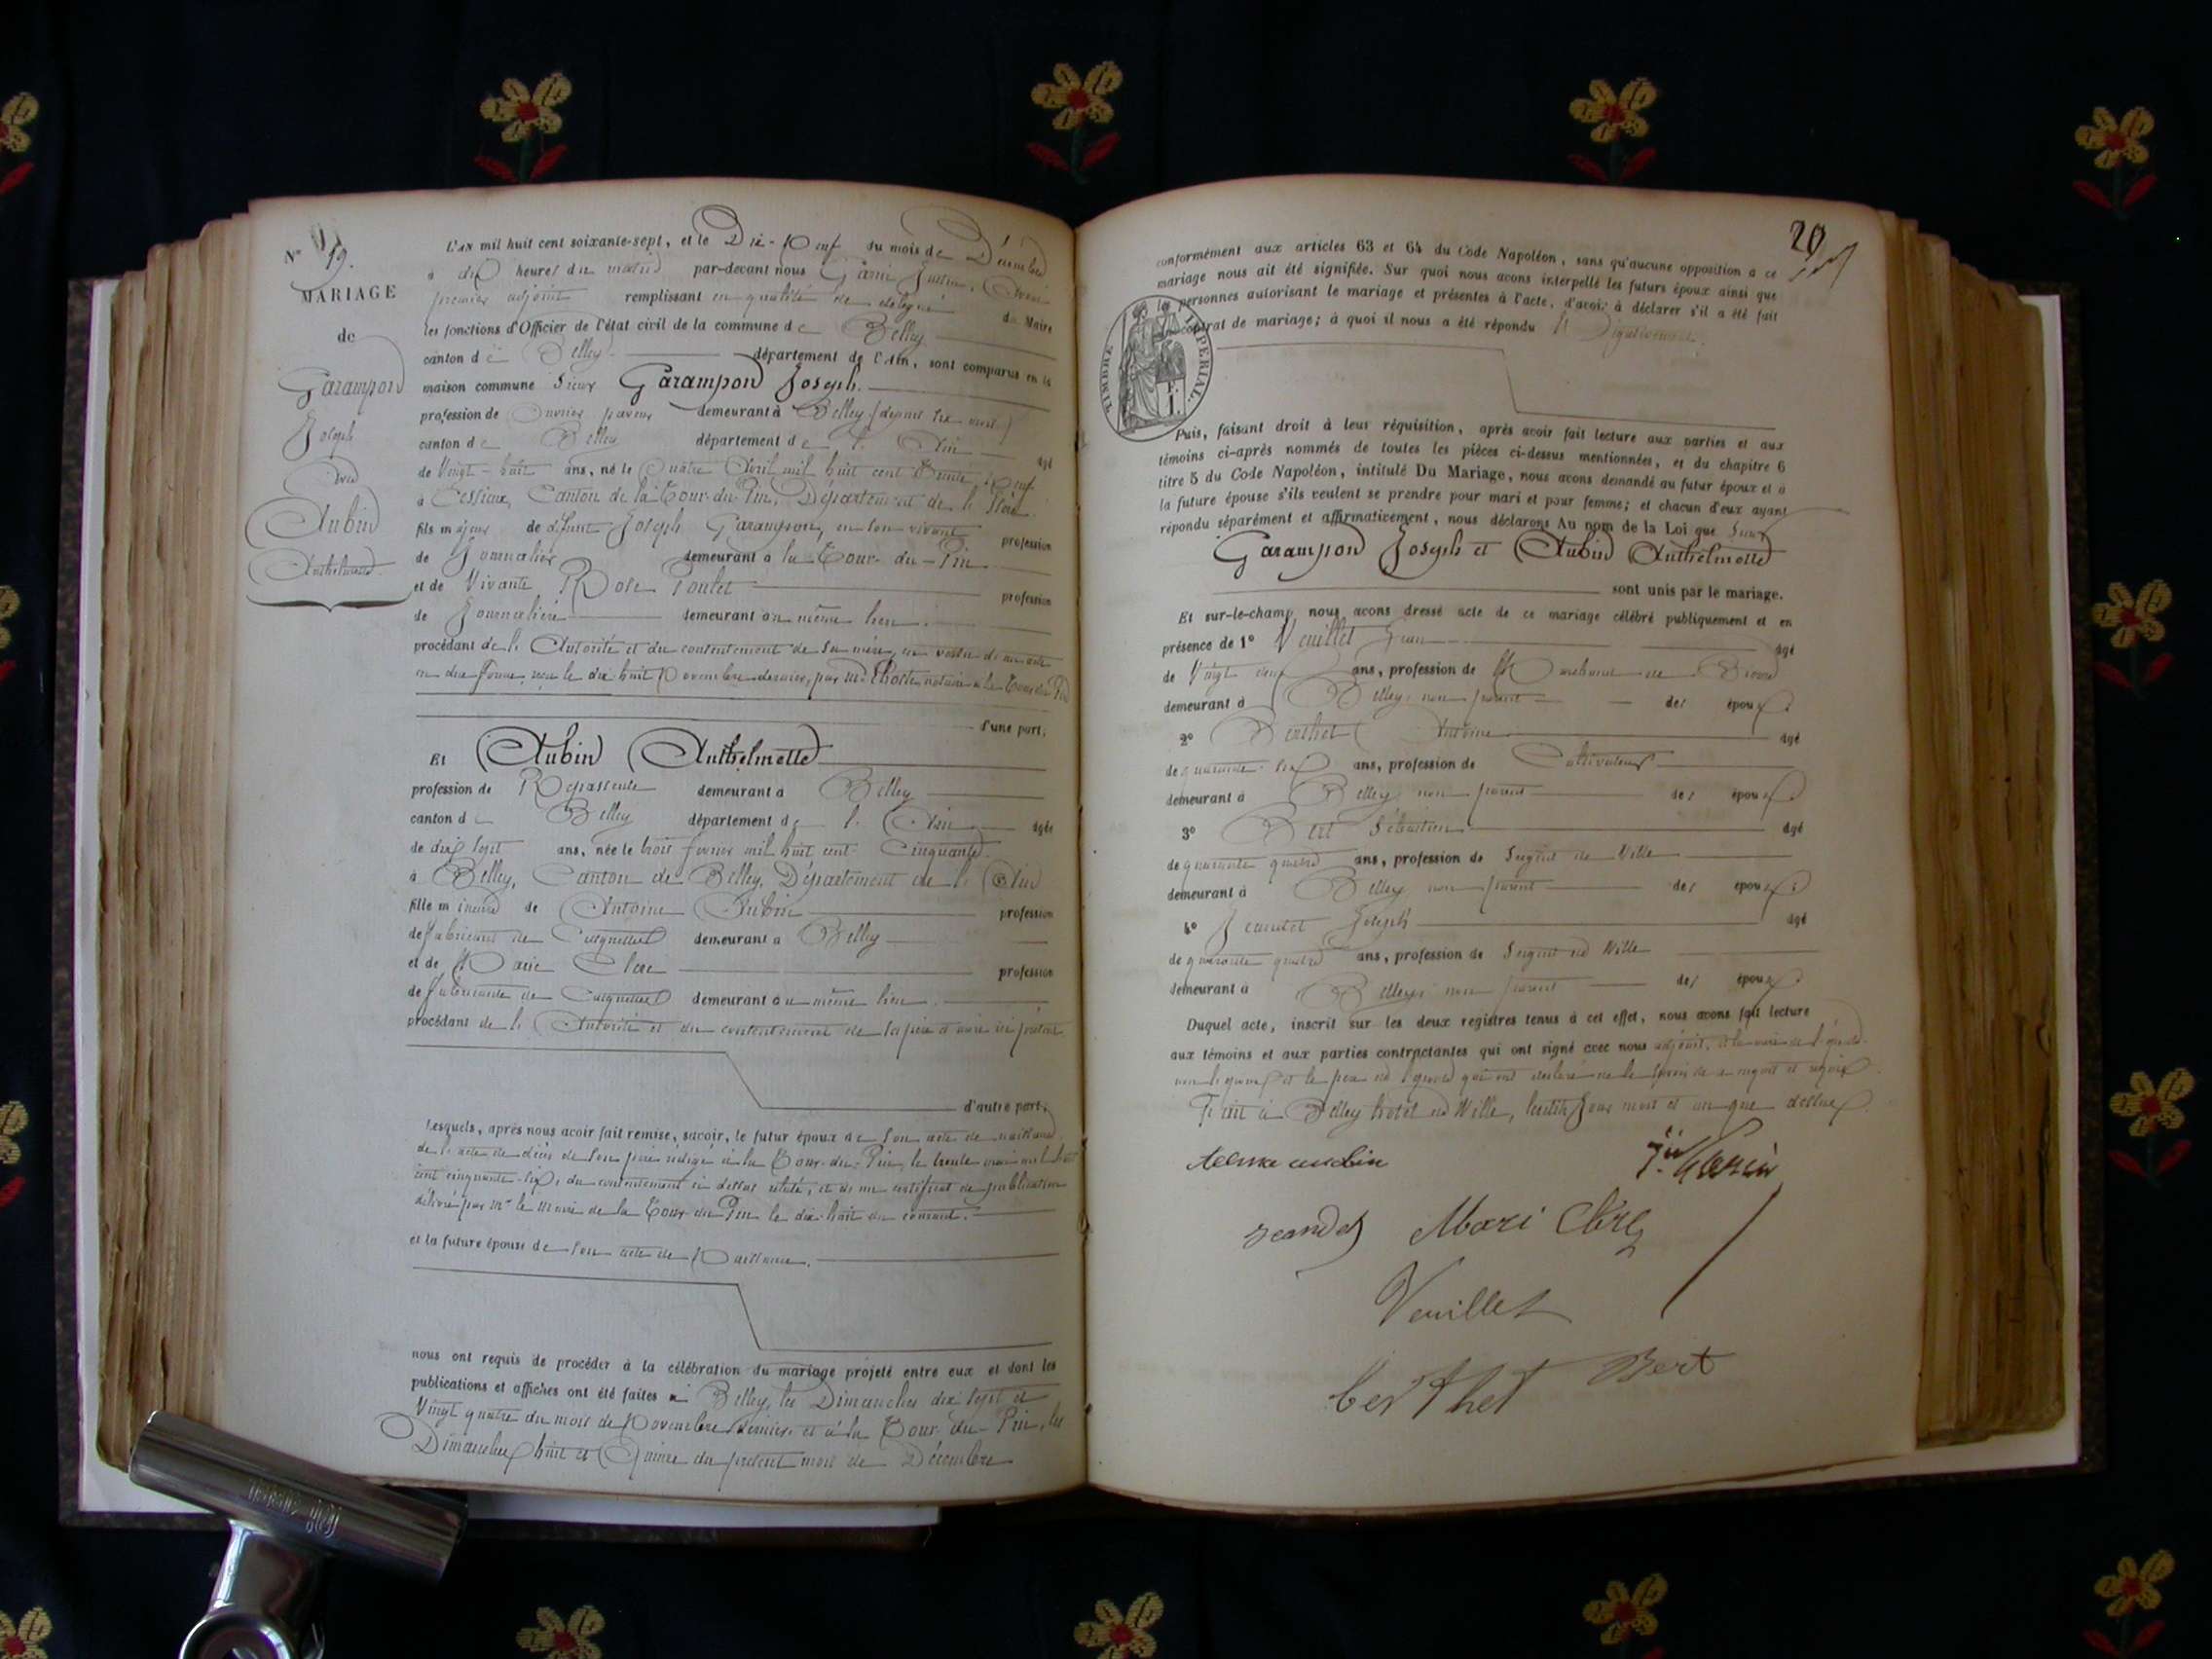 N° 19.
MARIAGE
de
Garampon
Joseph
Avec
Aubin
Anthelmette
L'AN mil huit cent soixante-sept, et le Dix-Neuf du mois de Décembre
à dix heures du matin par-devant nous
premier adjoint remplissant en qualité de délégué du Maire
les fonctions d'Officier de l'état civil de la commune de Belley
canton de Belley département de l'Ain, sont comparus en la
maison commune Sieur Garampon Joseph.
profession de Ouvrier paveur demeurant à Belley (depuis six mois)
canton de Belley département de l'Ain âgé
de Vingt-huit ans, né le Quatre Avril mil huit cent Trente Neuf
à Cessieux, Canton de la Tour-du-Pin, Département de l'Isère.
fils majeur de défunt Joseph Garampon, en son vivant profession
de Journalier demeurant à la Tour-du-Pin
et de Vivante Rose Pontet profession
de Journalière demeurant au même lieu.
procédant de l'Autorité et du consentement de sa mère, en vertu d'un acte
en due forme, reçu le dix huit Novembre dernier, par Me notaire à la Tour du Pin
d'une part;
Et Aubin Anthelmette
profession de Repasseuse demeurant à Belley
canton de Belley département de l'Ain âgée
de dix sept ans, née le trois mil huit cent Cinquante
à Belley, Canton de Belley, Département de l'Ain
fille mineure de Antoine Aubin profession
de fabricant de demeurant à Belley
et de Marie Clerc profession
de fabricante de demeurant au même lieu.
procédant de l'Autorité et du consentement de ses père et mère ici présents
d'autre part;
Lesquels, après nous avoir fait remise, savoir, le futur époux de son acte de naissance
de l'acte de décès de son père rédigé à la Tour-du-Pin, le trente mil huit
cent cinquante-six, du consentement ci dessus relaté, et de un certificat de publication
délivré par Mr le Maire de la Tour du Pin le dix-huit du courant.
et la future épouse de son acte de Naissance.
nous ont requis de procéder à la célébration du mariage projeté entre eux et dont les
publications et affiches ont été faites à Belley, les Dimanches dix sept et
Vingt quatre du mois de Novembre dernier et à la Tour-du-Pin, les
Dimanches huit et Quinze du présent mois de Décembre
20
conformément aux articles 63 et 64 du Code Napoléon, sans qu'aucune opposition à ce
mariage nous ait été signifiée. Sur quoi nous avons interpellé les futurs époux ainsi que
les personnes autorisant le mariage et présentes à l'acte, d'avoir à déclarer s'il a été fait
contrat de mariage; à quoi il nous a été répondu Négativement.
TIMBRE IMPERIAL
Puis, faisant droit à leur réquisition, après avoir fait lecture aux parties et aux
témoins ci-après nommés de toutes les pièces ci-dessus mentionnées, et du chapitre 6
titre 5 du Code Napoléon, intitulé Du Mariage, nous avons demandé au futur époux et à
la future épouse s'ils veulent se prendre pour mari et pour femme; et chacun d'eux ayant
répondu séparément et affirmativement, nous déclarons Au nom de la Loi que Sieur
Garampon Joseph et Aubin Anthelmette
sont unis par le mariage.
Et sur-le-champ nous avons dressé acte de ce mariage célébré publiquement et en
présence de 1° Veuillet Jean âgé
de Vingt deux ans, profession de Marchand de
demeurant à Belley, non parent des époux
2° Berthet Antoine âgé
de quarante-six ans, profession de Cultivateur
demeurant à Belley non parent des époux
3° Bert Sébastien âgé
de quarante quatre ans, profession de Sergent de Ville
demeurant à Belley non parent des époux
4° Jeandet Joseph âgé
de quarante quatre ans, profession de Sergent de Ville
demeurant à Belley non parent des époux
Duquel acte, inscrit sur les deux registres tenus à cet effet, nous avons fait lecture
aux témoins et aux parties contractantes qui ont signé avec nous adjoint, et la mère de l'épouse
non l'époux et le père de l'épouse qui ont déclaré ne le savoir de ce requis
Fait à Belley hotel de Ville, lesdits Jour mois et an que dessus.
Jeandet Mari Clerc
Veuillet
berthet Bert